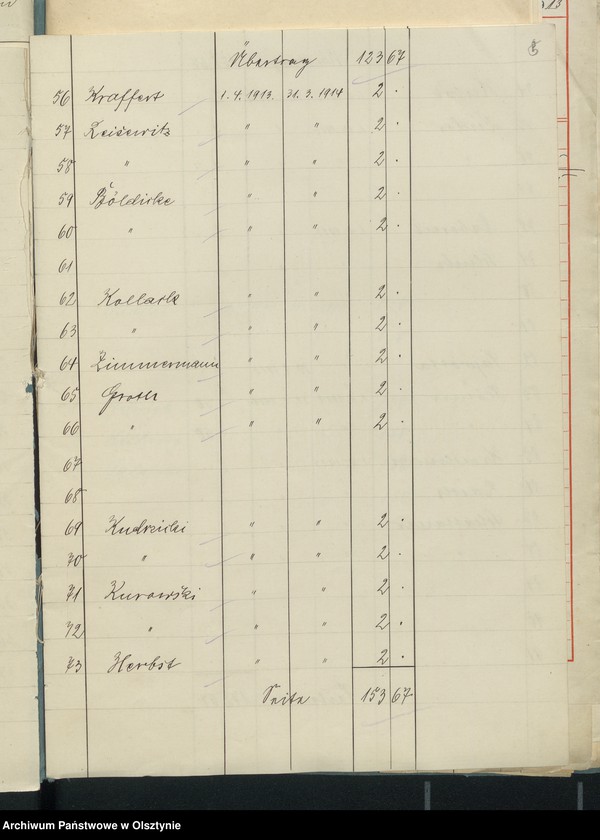 Übertrag 123 67
56 Kraffert 1.4.1913. 31.3.1914 2 .
57 Zeisewitz " " 2 .
58 " " " 2 .
59 " " 2 .
60 " " " 2 .
61
62 " " 2 .
63 " " " 2 .
64 Zimmermann " " 2 .
65 Groth " " 2 .
66 " " " 2 .
67
68
69 Kudrzicki " " 2 .
70 " " " 2 .
71 Kurowski " " 2 .
72 " " " 2 .
73 Herbst " " 2 .
Seite 153 67
Archiwum Państwowe w Olsztynie